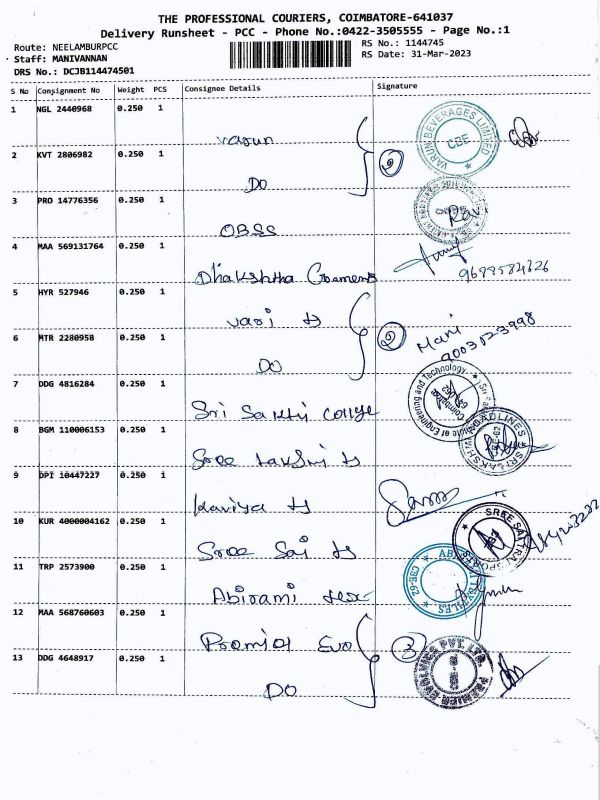 THE PROFESSIONAL COURIERS, COIMBATORE-641037
Delivery Runsheet - PCC - Phone No.:0422-3505555 - Page No.:1
Route: NEELAMBURPCC
RS No.: 1144745
Staff: MANIVANNAN
RS Date: 31-Mar-2023
DRS No.: DCJB114474501
S No Consignment No Weight PCS Consignee Details Signature
1 NGL 2440968 0.250 1
Varun
VARUN BEVERAGES LIMITED
CBE
2 KVT 2806982 0.250 1
DO
2
3 PRO 14776356 0.250 1
OBSS
Ravi
4 MAA 569131764 0.250 1
Dhakshtha Garments
5 HYR 527946 0.250 1
vari ts
6 MTR 2280958 0.250 1
DO
2
Mani
7 DDG 4816284 0.250 1
Sri Sakthi College
Institute of Engineering and Technology
Coimbatore
8 BGM 110006153 0.250 1
Sree Lakshmi ts
SRI LAKSHMI
9 DPI 10447227 0.250 1
Kaviya ts
10 KUR 4000004162 0.250 1
Sree Sai ts
SREE SAI
11 TRP 2573900 0.250 1
Abirami tex
CBE-62
12 MAA 568760603 0.250 1
Premier Evo
13 DDG 4648917 0.250 1
DO
PREMIER EVOLVICS PVT. LTD.